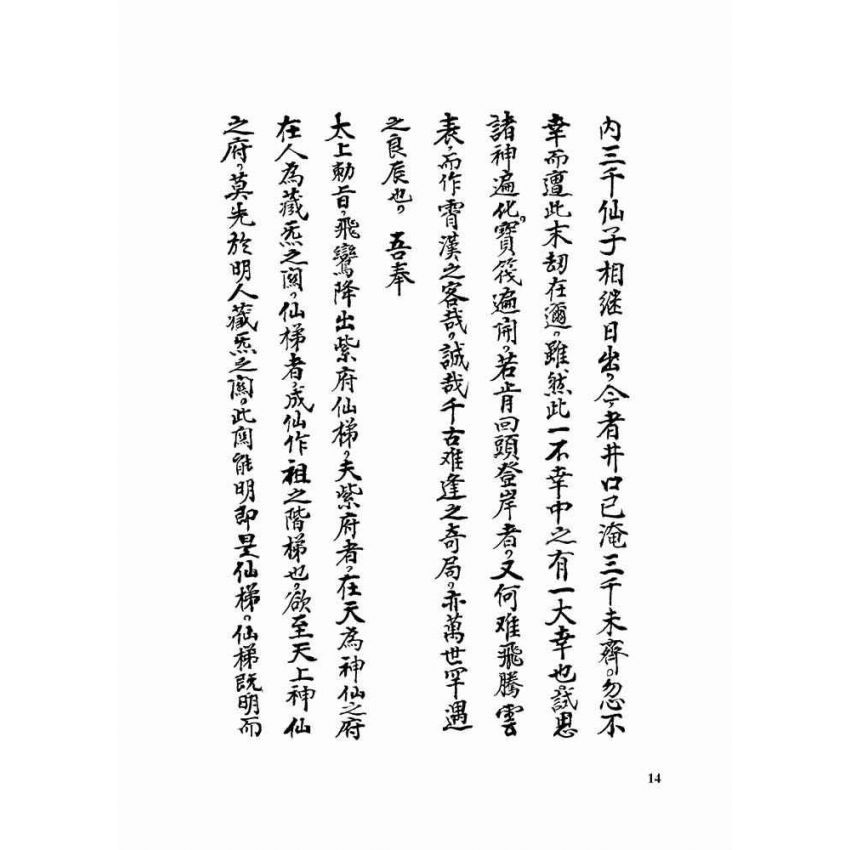 内三千仙子相继日出。今者井口已淹三千未齊。忽不
幸而遭此末刼在邇。雖然此一不幸中之有一大幸也。試思
諸神遍化。寶筏遍開。若肯回頭登岸者。又何难飛騰雲
表。而作霄漢之客哉。誠哉千古难逢之奇局。亦萬世罕遇
之良辰也。吾奉
太上勅旨。飛鸞降出紫府仙梯。夫紫府者。在天為神仙之府
在人為藏炁之関。仙梯者。成仙作祖之階梯也。欲至天上神仙
之府。莫先於明人藏炁之関。此関能明即是仙梯。仙梯既明而
14